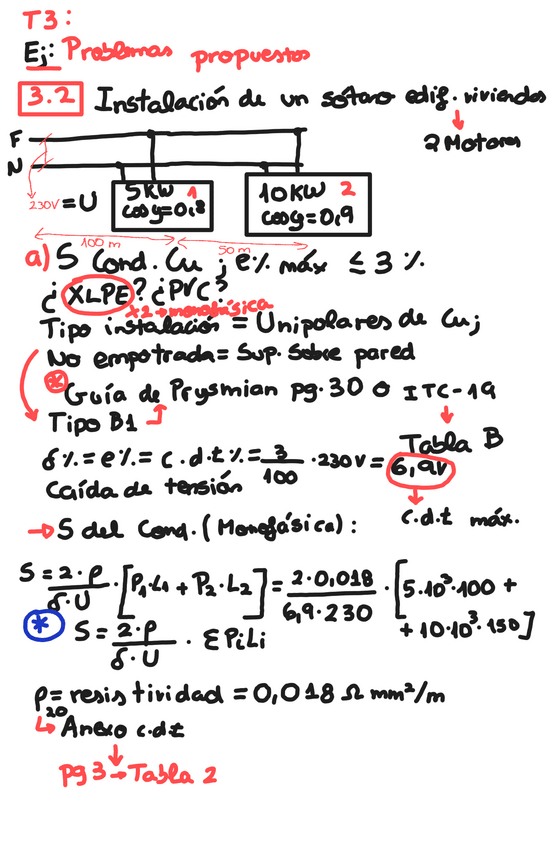 T3:
Ej: Problemas propuestos
3.2 Instalación de un sótano edif. viviendas
2 Motores
F
N
230V = U
5KW 1
cosφ=0,8
10KW 2
cosφ=0,9
100 m
50 m
a) S Cond. Cu ; e% máx ≤ 3 %
¿XLPE? ¿PVC?
x2 → monofásica
Tipo instalación = Unipolares de Cu;
No empotrada = Sup. Sobre pared
* Guía de Prysmian pg. 30 o ITC-19
Tipo B1
Tabla B
δ% = e% = c.d.t % = 3/100 · 230V = 6,9V
Caída de tensión
c.d.t máx.
→ S del Cond. (Monofásica):
S = 2·ρ/δ·U · [P1·L1 + P2·L2] = 2·0,018/6,9·230 · [5·10³·100 +
+ 10·10³·150]
* S = 2·ρ/δ·U · ΣPiLi
ρ20 = resistividad = 0,018 Ω mm²/m
↳ Anexo c.d.t
pg 3 → Tabla 2